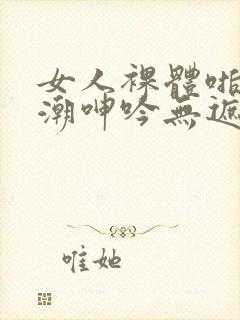 女人裸體啪
潮呻吟無遮
唯她